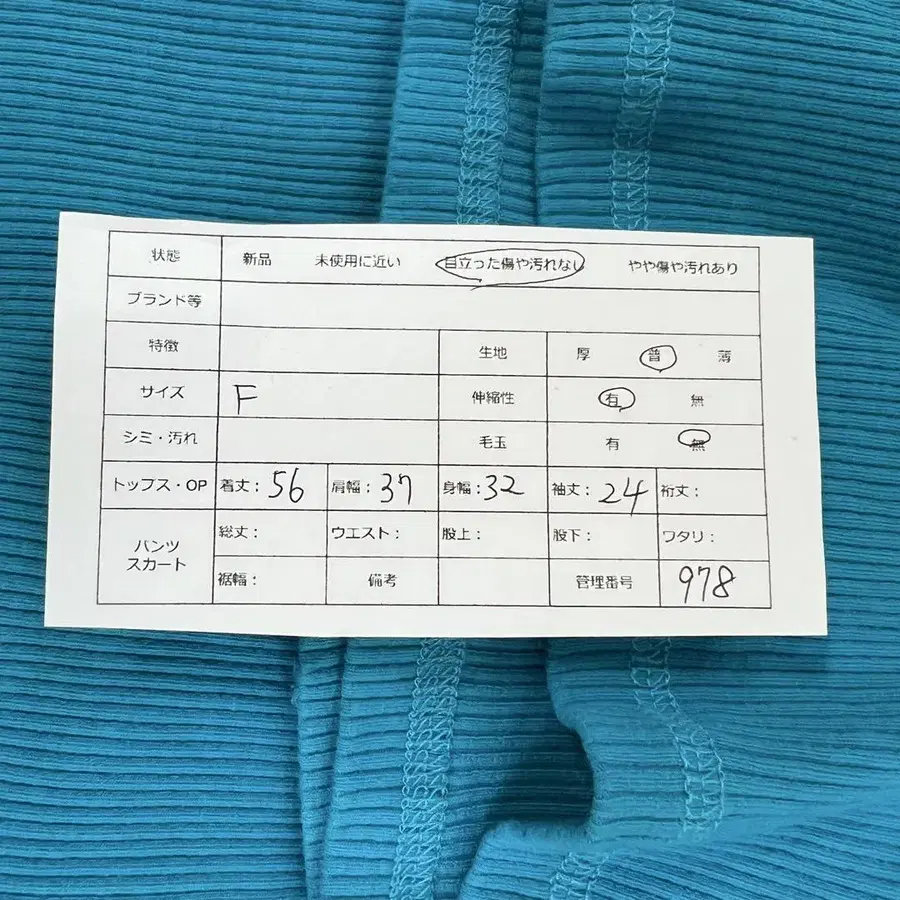 状態 新品 未使用に近い 目立った傷や汚れなし やや傷や汚れあり
ブランド等
特徴 生地 厚 普 薄
サイズ F 伸縮性 有 無
シミ・汚れ 毛玉 有 無
トップス・OP 着丈： 56 肩幅： 37 身幅： 32 袖丈： 24 裄丈：
パンツ スカート 総丈： ウエスト： 股上： 股下： ワタリ：
裾幅： 備考 管理番号 978